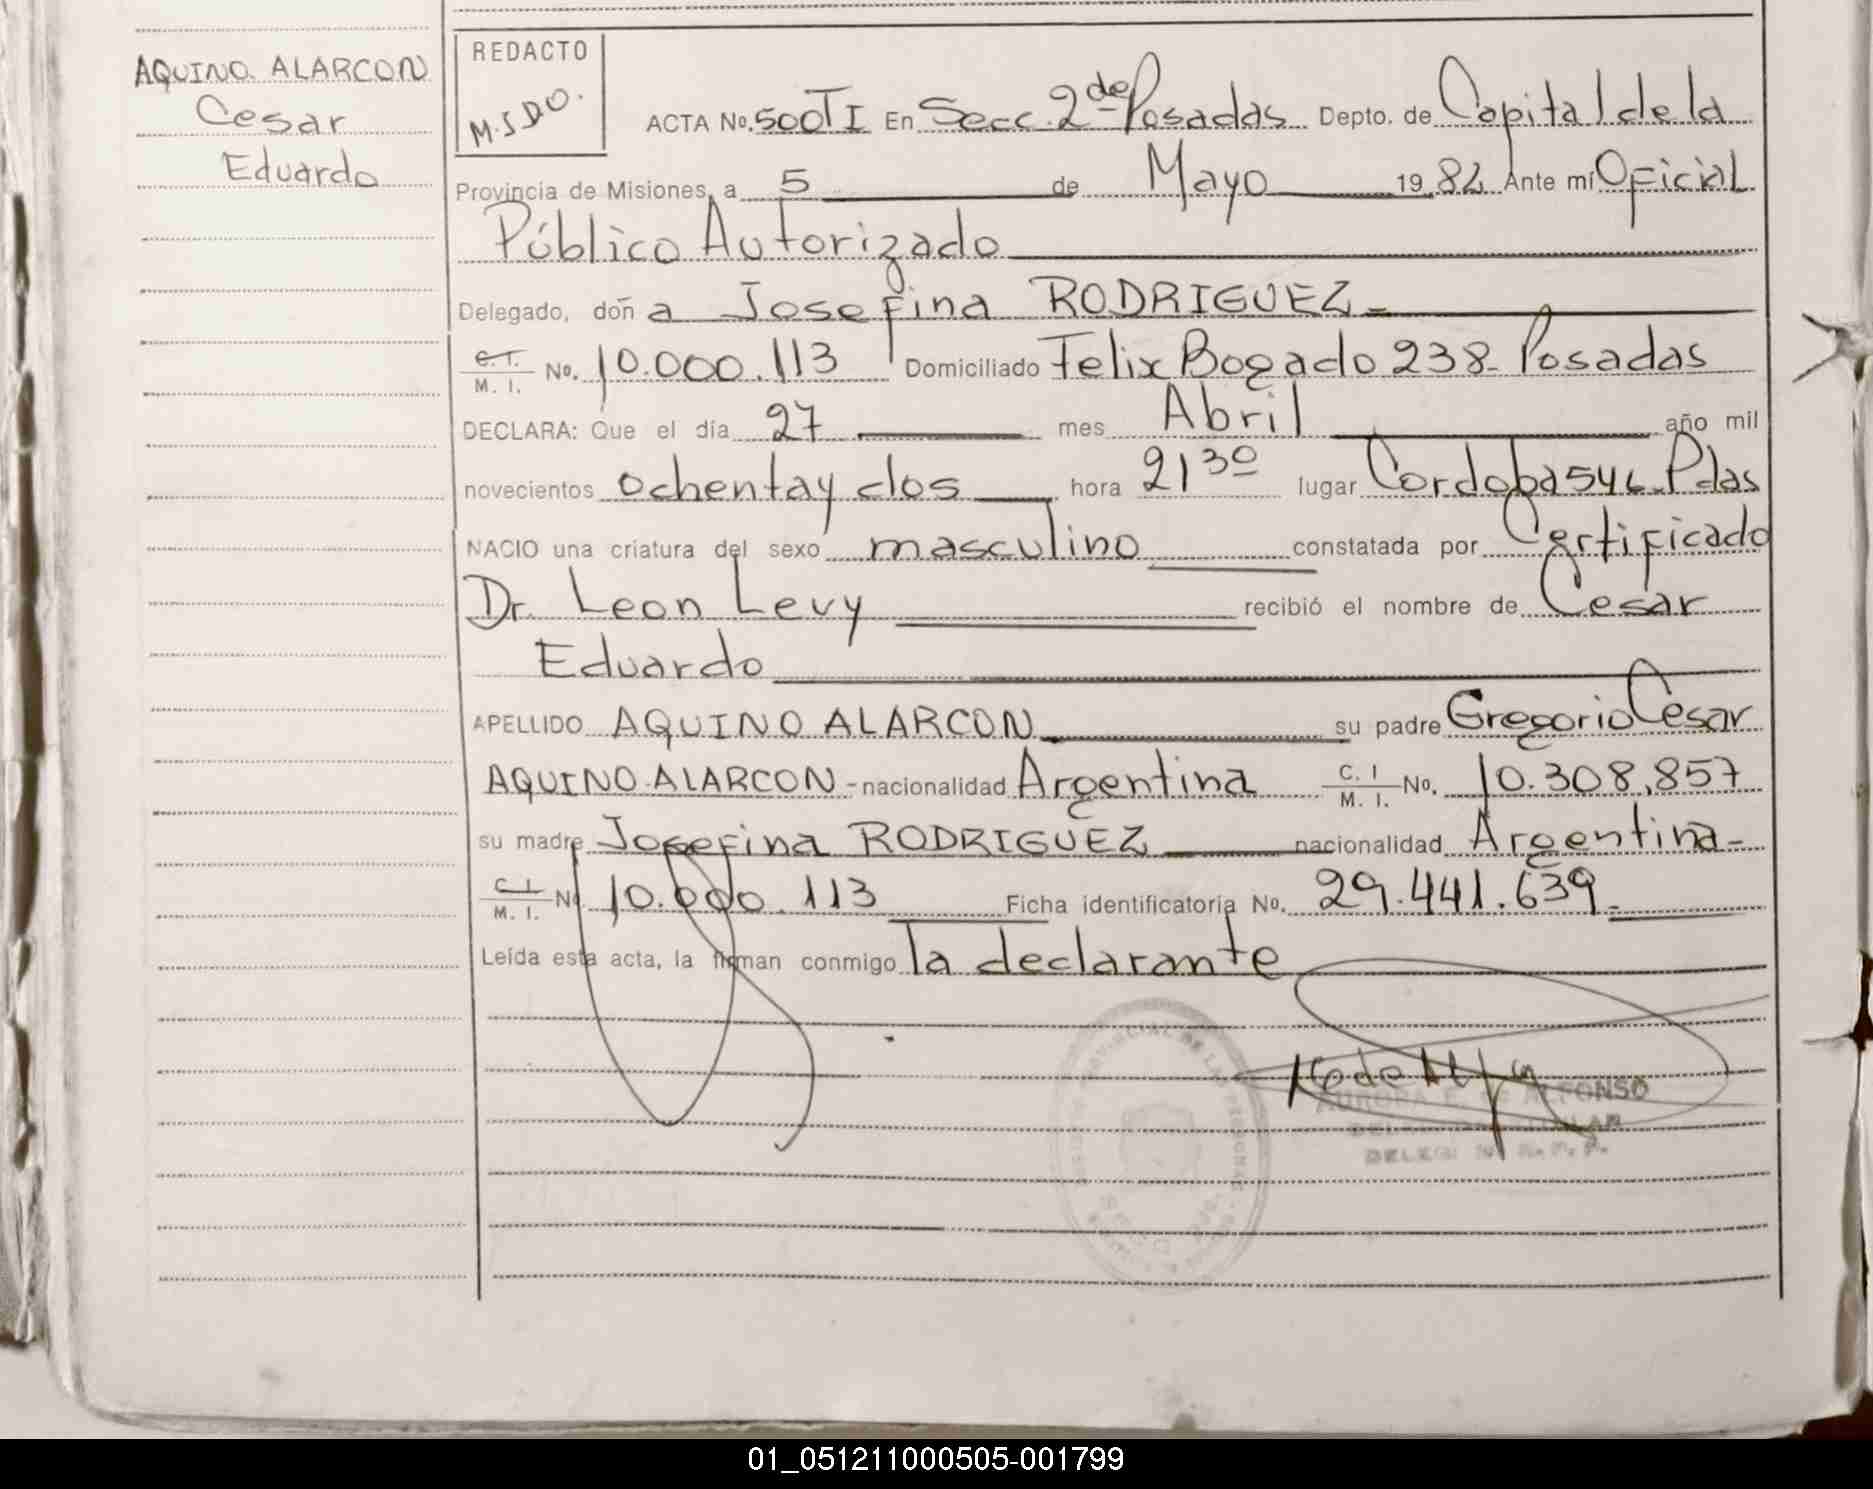 AQUINO ALARCON
Cesar
Eduardo
REDACTO
M.S.D.O.
ACTA No. 500 TI En Secc. 2de Posadas Depto. de Capital de la
Provincia de Misiones, a 5 de Mayo 1982 Ante mi Oficial
Público Autorizado
Delegado, doña Josefina RODRIGUEZ
C.I. M. I. No. 10.000.113 Domiciliado Felix Bogado 238 Posadas
DECLARA: Que el día 27 mes Abril año mil
novecientos ochenta y dos hora 21 30 lugar Cordoba 546 Pdas
NACIO una criatura del sexo masculino constatada por Certificado
Dr. Leon Levy recibió el nombre de Cesar
Eduardo
APELLIDO AQUINO ALARCON su padre Gregorio Cesar
AQUINO ALARCON - nacionalidad Argentina C. I M. I. No. 10.308.857
su madre Josefina RODRIGUEZ nacionalidad Argentina -
C I M. I. No. 10.000.113 Ficha identificatoria No. 29.441.639
Leída esta acta, la firman conmigo la declarante
AURORA E. DE ALFONSO
01_051211000505-001799